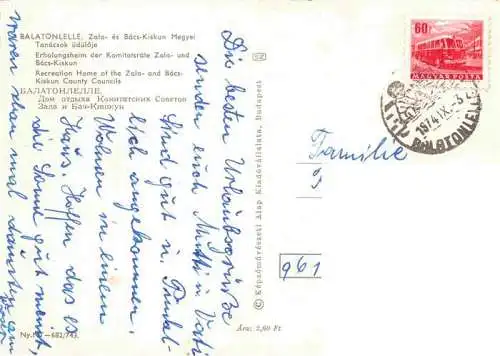 BALATONLELLE. Zala- és Bács-Kiskun Megyei
Tanácsok üdülője
Erholungsheim der Komitatsräte Zala- und
Bács-Kiskun
Recreation Home of the Zala- and Bács-
Kiskun County Councils
БАЛАТОНЛЕЛЛЕ.
Дом отдыха Комитетских Советов
Зала и Бач-Кишкун
Die besten Urlaubsgrüße
senden euch Mutti u. Vati
Sind gut in
lich angekommen.
Wohnen in einem
Haus. Hoffen das es
die Sonne gut meint,
waren schon mal am
Ny.
-682/743.
© Képzőművészeti Alap Kiadóvállalata, Budapest
Ára: 2,60 Ft
60f
MAGYAR POSTA
1974 IX.
BALATONLELLE
Familie
961